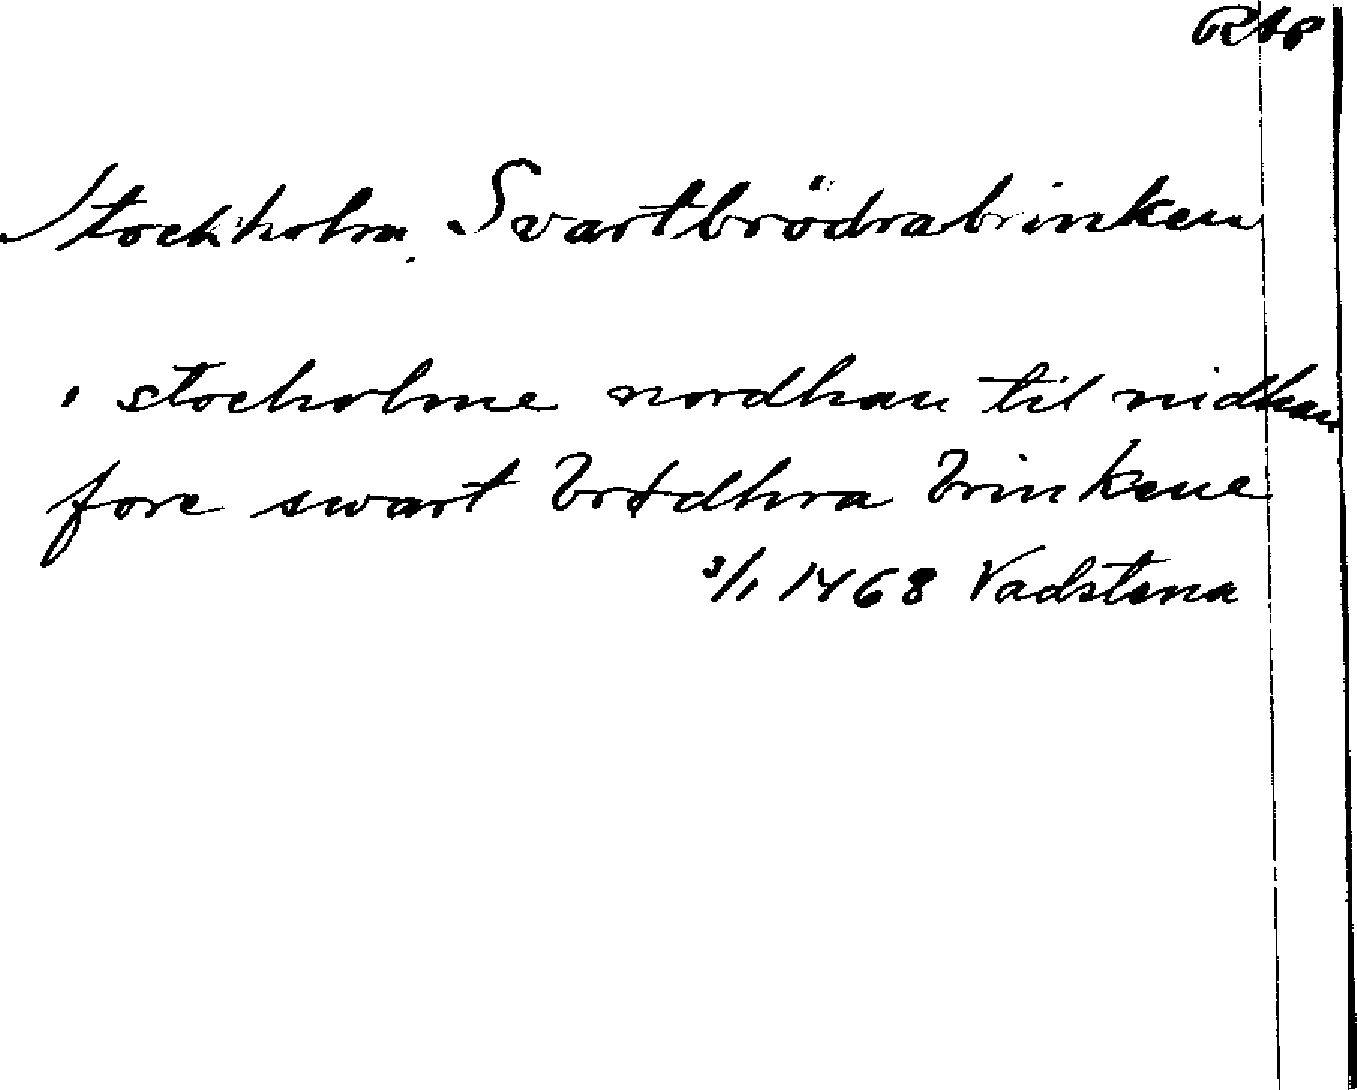 RAP
Stockholm. Svartbrödrabrinken
i stocholme nordhan til nidhan
fore swart brødhra brinkene
3/1 1468 Vadstena